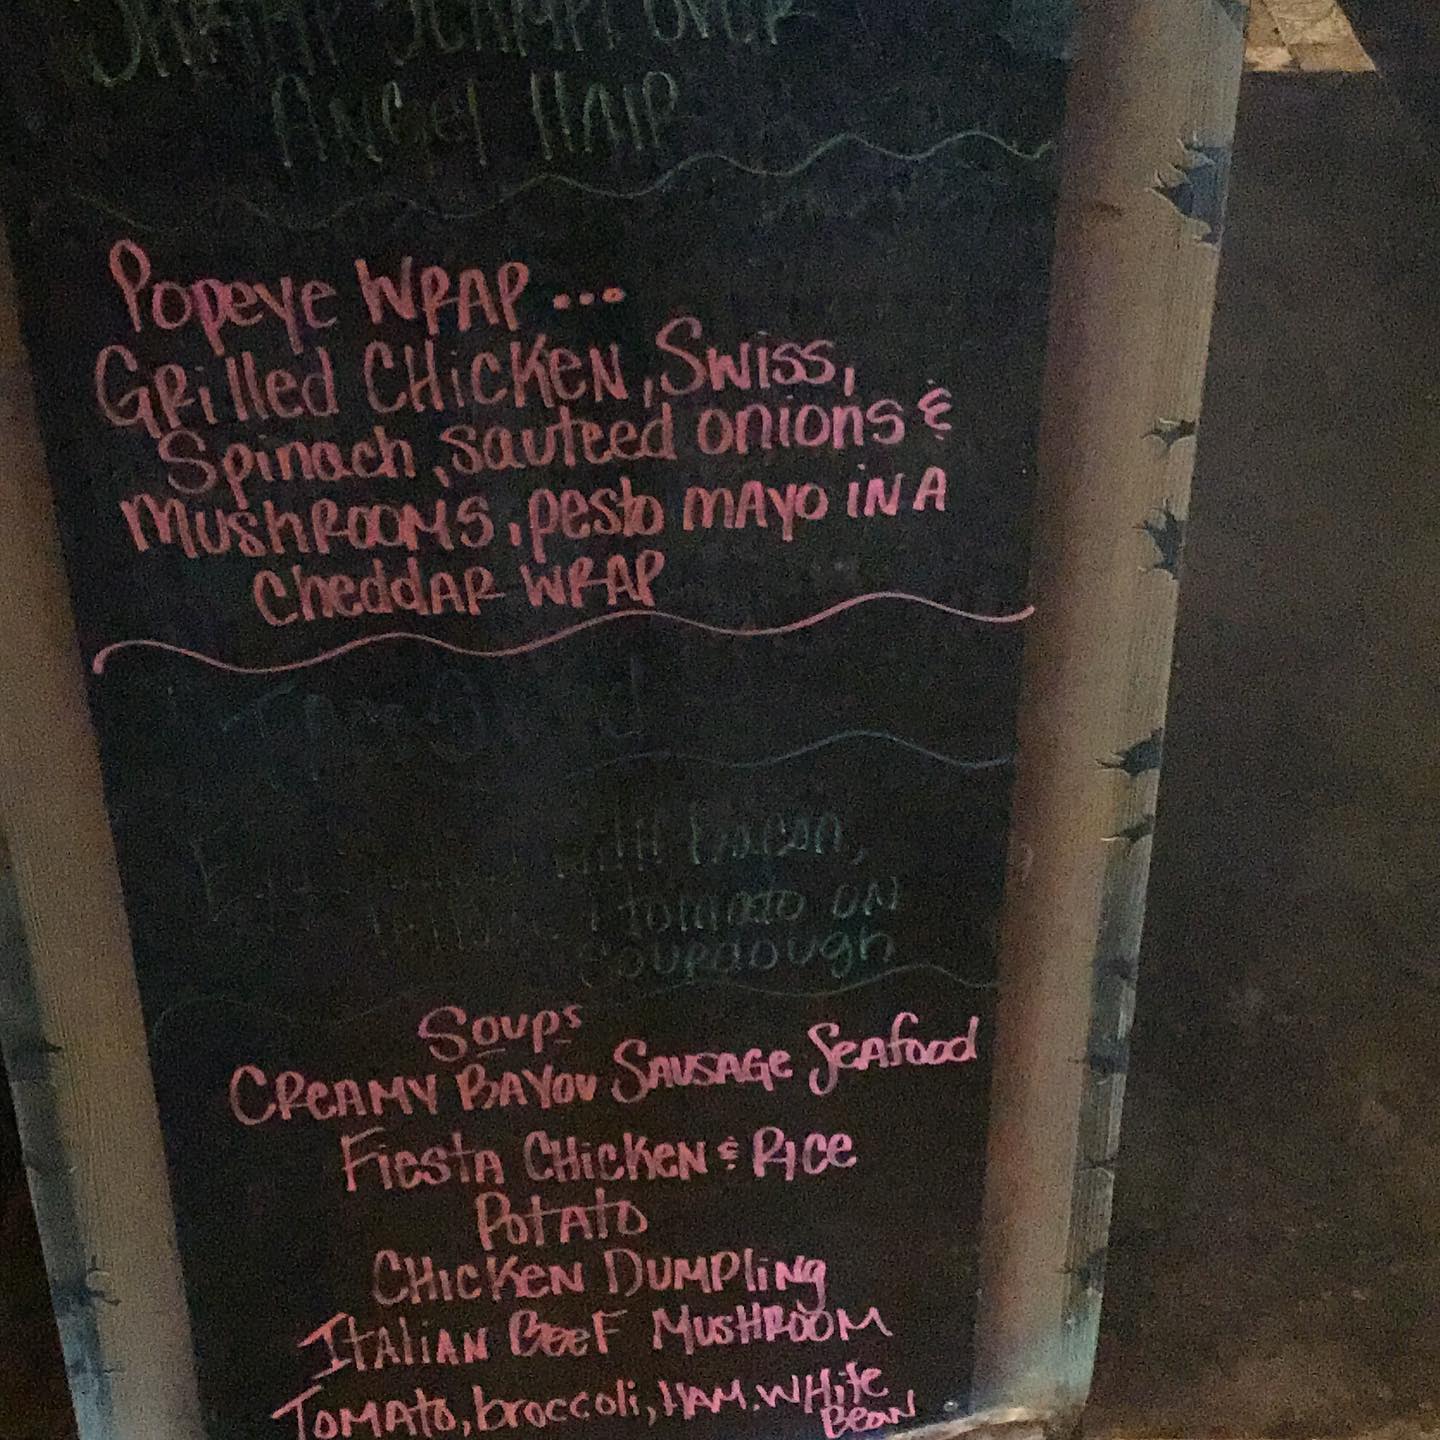 SHRIMP SCAMPI OVER
ANGEL HAIR
Popeye WRAP ...
GRilled CHicKeN, Swiss,
Spinach, sauteed onions &
MushROOMS, pesto MAyo iN A
CheddAR WRAP
bacon,
tomato ON
SOURDOUGH
Soups
CReAMY BAYou SAUSAGe SeAfood
FiestA CHicKeN & Rice
PotAto
CHicKeN DUMPliNg
ItAliAN BeeF MusHROOM
TOMAto, broccoli, HAM. WHite
BeaN